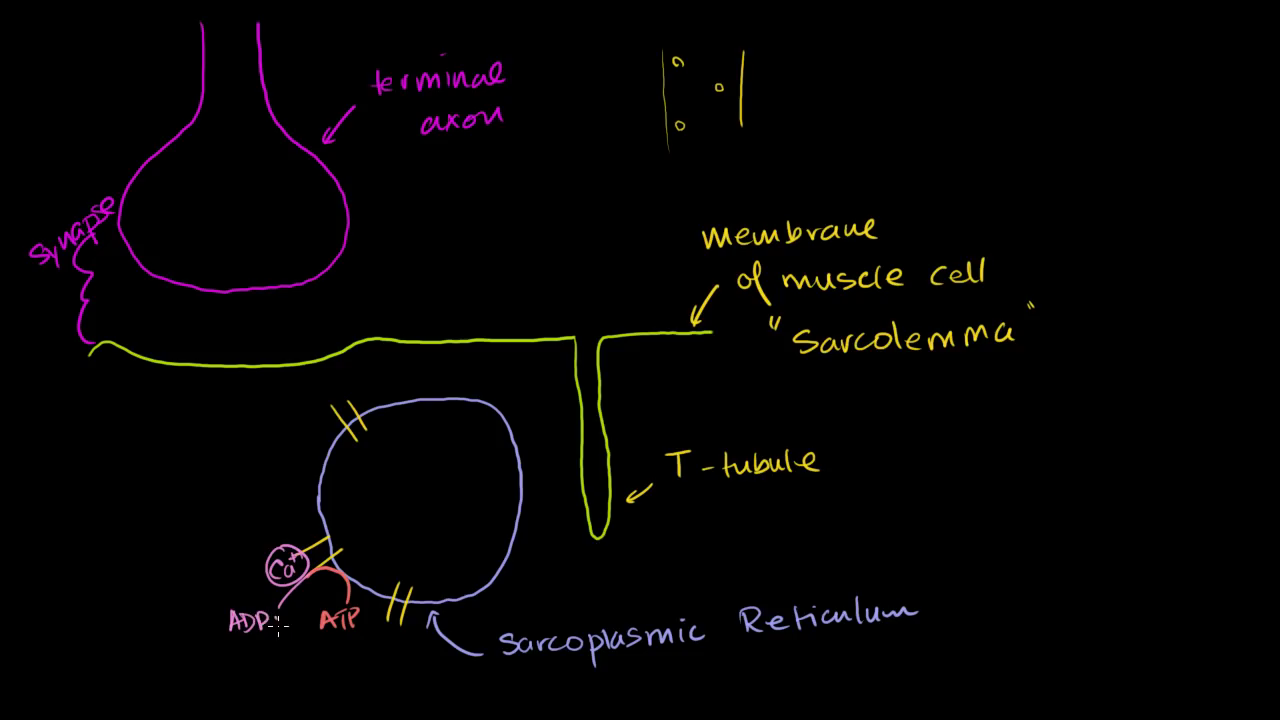 terminal
axon
synapse
membrane
of muscle cell
"Sarcolemma"
T-tubule
Ca+
ADP
ATP
Sarcoplasmic Reticulum